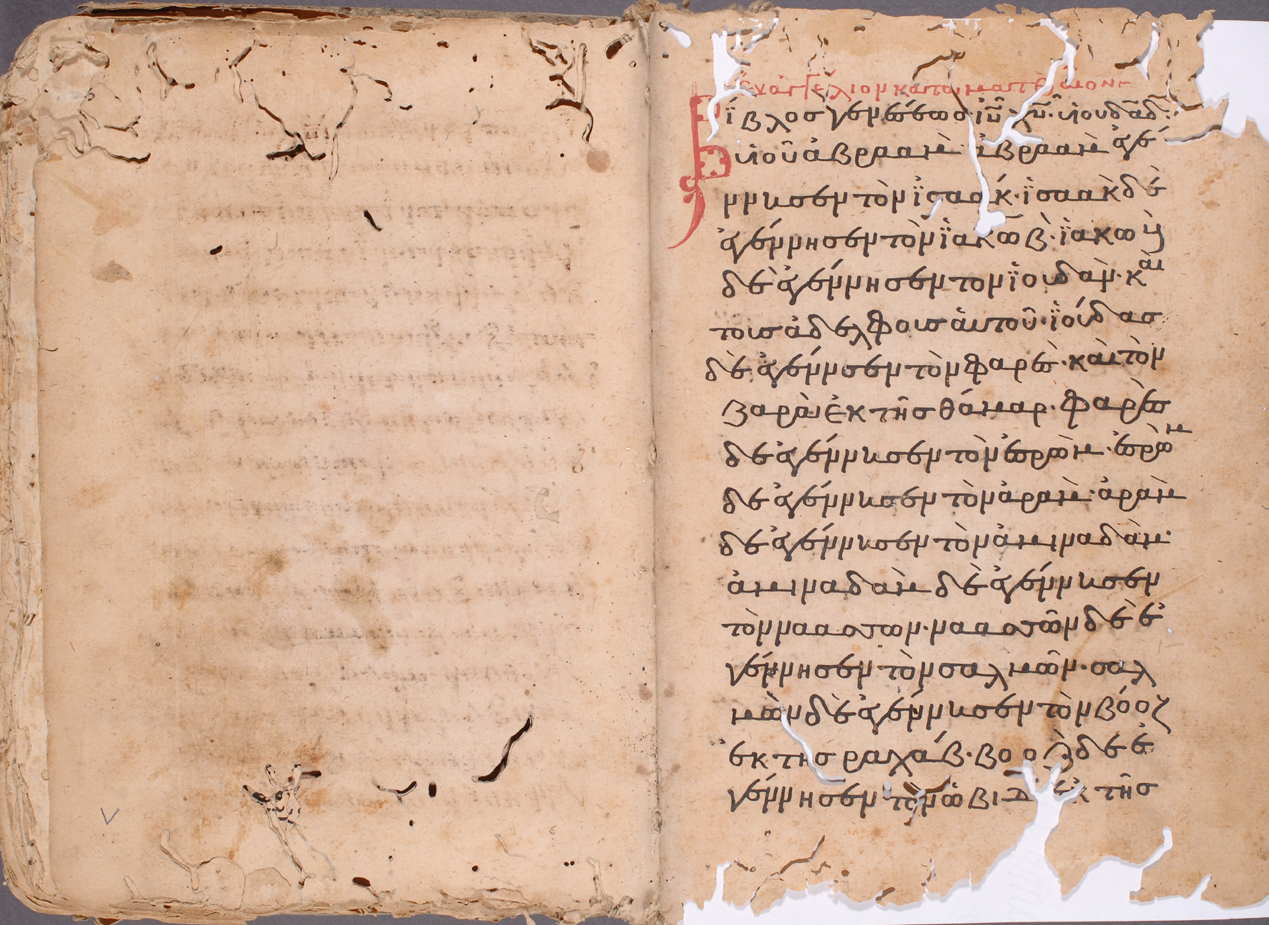 ευαγγελιον κατα ματθαιον
Βίβλος γενέσεως ἰῡ χῡ· υἱου δᾱδ·
υἱοῦ ἀβραάμ· ἀβραὰμ ἐγέ
ννησεν τὸν ἰσαάκ· ἰσαὰκ δὲ
ἐγέννησεν τὸν ϊακὼβ· ϊακὼβ
δὲ ἐγέννησεν τον ϊουδαν· καὶ
τοισ ἀδελφοισ ἀυτοῦ· ϊούδασ
δὲ ἐγέννσεν τὸν φαρὲσ· καὶ τὸν
ζαρὰ· ἐκ τῆσ θάμαρ· φαρὲσ
δὲ ἐγέννησεν τὸν ἐσρὼμ· ἐσρὼμ
δὲ ἐγέννησεν τὸν ἀραμ· ἀρὰμ
δὲ ἐγέννησεν τὸν ἀμιναδὰμ·
ἀμιναδὰμ δὲ ἐγέννησεν
τὸν ναασσων· ναασσῶν δὲ ἐ
γέννησεν τὸν σαλμῶν· σαλ
μὼν δὲ ἐγέννησεν τὸν βόοζ
ἐκ τησ ραχάβ· βοοζ δὲ ἐ
γέννησεν τὸν ὠβὴδ ἐκ τῆσ